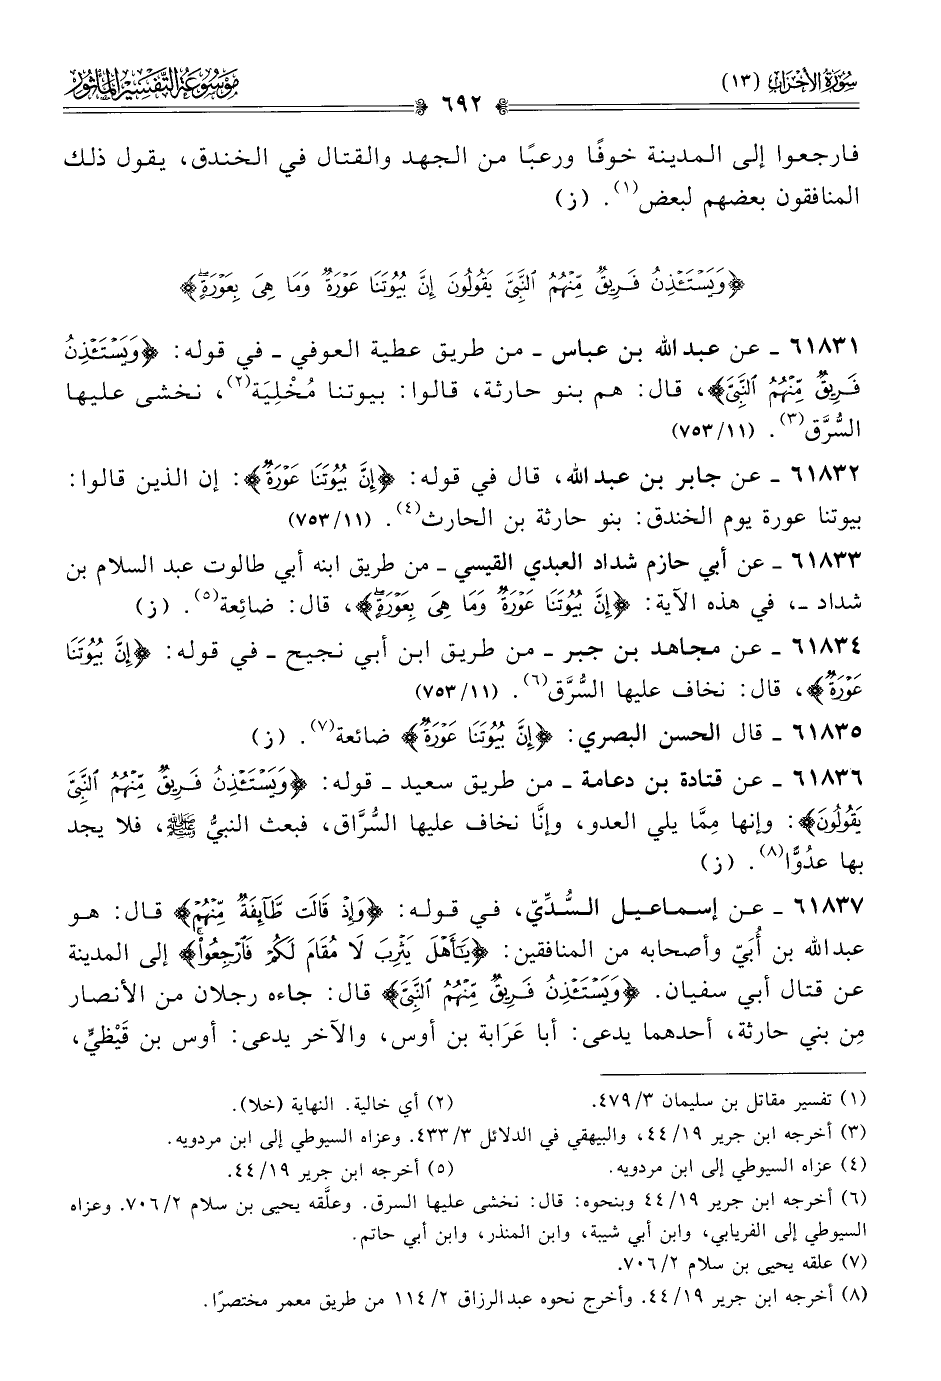 سُورَةُ الأَحْزَابِ (١٣)
٦٩٢
مَوْسُوعَةُ التَّفْسِيرِ المَأْثُورِ
فارجعوا إلى المدينة خوفًا ورعبًا من الجهد والقتال في الخندق، يقول ذلك
المنافقون بعضهم لبعض(١). (ز)
﴿وَيَسْتَـْٔذِنُ فَرِيقٌ مِّنْهُمُ ٱلنَّبِيَّ يَقُولُونَ إِنَّ بُيُوتَنَا عَوْرَةٌ وَمَا هِىَ بِعَوْرَةٍۖ﴾
٦١٨٣١ ـ عن عبد الله بن عباس ـ من طريق عطية العوفي ـ في قوله: ﴿وَيَسْتَـْٔذِنُ
فَرِيقٌ مِّنْهُمُ ٱلنَّبِيَّ﴾، قال: هم بنو حارثة، قالوا: بيوتنا مُخْلِيَة(٢)، نخشى عليها
السُّرَّق(٣). (١١/ ٧٥٣)
٦١٨٣٢ ـ عن جابر بن عبد الله، قال في قوله: ﴿إِنَّ بُيُوتَنَا عَوْرَةٌ﴾: إن الذين قالوا:
بيوتنا عورة يوم الخندق: بنو حارثة بن الحارث(٤). (١١/ ٧٥٣)
٦١٨٣٣ ـ عن أبي حازم شداد العبدي القيسي ـ من طريق ابنه أبي طالوت عبد السلام بن
شداد ـ، في هذه الآية: ﴿إِنَّ بُيُوتَنَا عَوْرَةٌ وَمَا هِىَ بِعَوْرَةٍۖ﴾، قال: ضائعة(٥). (ز)
٦١٨٣٤ ـ عن مجاهد بن جبر ـ من طريق ابن أبي نجيح ـ في قوله: ﴿إِنَّ بُيُوتَنَا
عَوْرَةٌ﴾، قال: نخاف عليها السُّرَّق(٦). (١١/ ٧٥٣)
٦١٨٣٥ ـ قال الحسن البصري: ﴿إِنَّ بُيُوتَنَا عَوْرَةٌ﴾ ضائعة(٧). (ز)
٦١٨٣٦ ـ عن قتادة بن دعامة ـ من طريق سعيد ـ قوله: ﴿وَيَسْتَـْٔذِنُ فَرِيقٌ مِّنْهُمُ ٱلنَّبِيَّ
يَقُولُونَ﴾: وإنها مِمَّا يلي العدو، وإنَّا نخاف عليها السُّرَّاق، فبعث النبيُّ ﷺ، فلا يجد
بها عدُوًّا(٨). (ز)
٦١٨٣٧ ـ عن إسماعيل السُّدِّيّ، في قوله: ﴿وَإِذْ قَالَت طَّآئِفَةٌ مِّنْهُمْ﴾ قال: هو
عبدالله بن أُبَيّ وأصحابه من المنافقين: ﴿يَٰٓأَهْلَ يَثْرِبَ لَا مُقَامَ لَكُمْ فَٱرْجِعُوا۟ۚ﴾ إلى المدينة
عن قتال أبي سفيان. ﴿وَيَسْتَـْٔذِنُ فَرِيقٌ مِّنْهُمُ ٱلنَّبِيَّ﴾ قال: جاءه رجلان من الأنصار
مِن بني حارثة، أحدهما يدعى: أبا عَرَابة بن أوس، والآخر يدعى: أوس بن قَيْظيٍّ،
(١) تفسير مقاتل بن سليمان ٣/ ٤٧٩. (٢) أي خالية. النهاية (خلا).
(٣) أخرجه ابن جرير ١٩/ ٤٤، والبيهقي في الدلائل ٣/ ٤٣٣. وعزاه السيوطي إلى ابن مردويه.
(٤) عزاه السيوطي إلى ابن مردويه. (٥) أخرجه ابن جرير ١٩/ ٤٤.
(٦) أخرجه ابن جرير ١٩/ ٤٤ وبنحوه: قال: نخشى عليها السرق. وعلَّقه يحيى بن سلام ٢/ ٧٠٦. وعزاه
السيوطي إلى الفريابي، وابن أبي شيبة، وابن المنذر، وابن أبي حاتم.
(٧) علقه يحيى بن سلام ٢/ ٧٠٦.
(٨) أخرجه ابن جرير ١٩/ ٤٤. وأخرج نحوه عبدالرزاق ٢/ ١١٤ من طريق معمر مختصرًا.